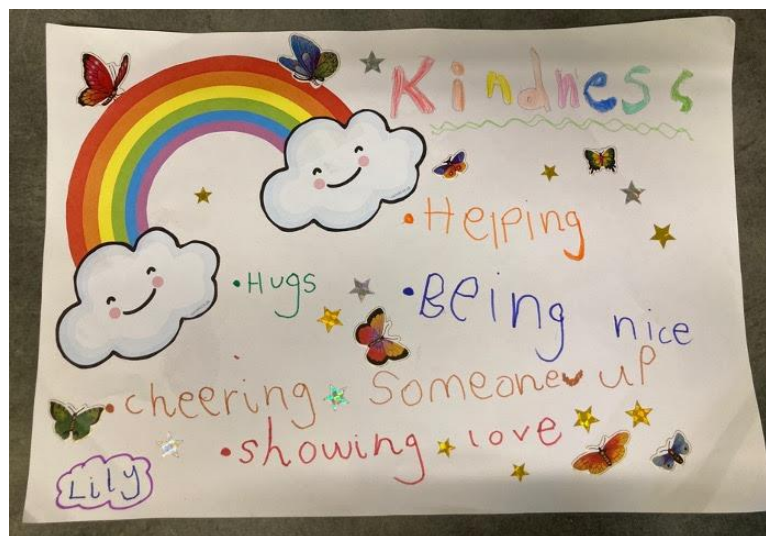 Kindness
• Helping
• Hugs
• Being nice
• cheering someone up
• showing love
Lily